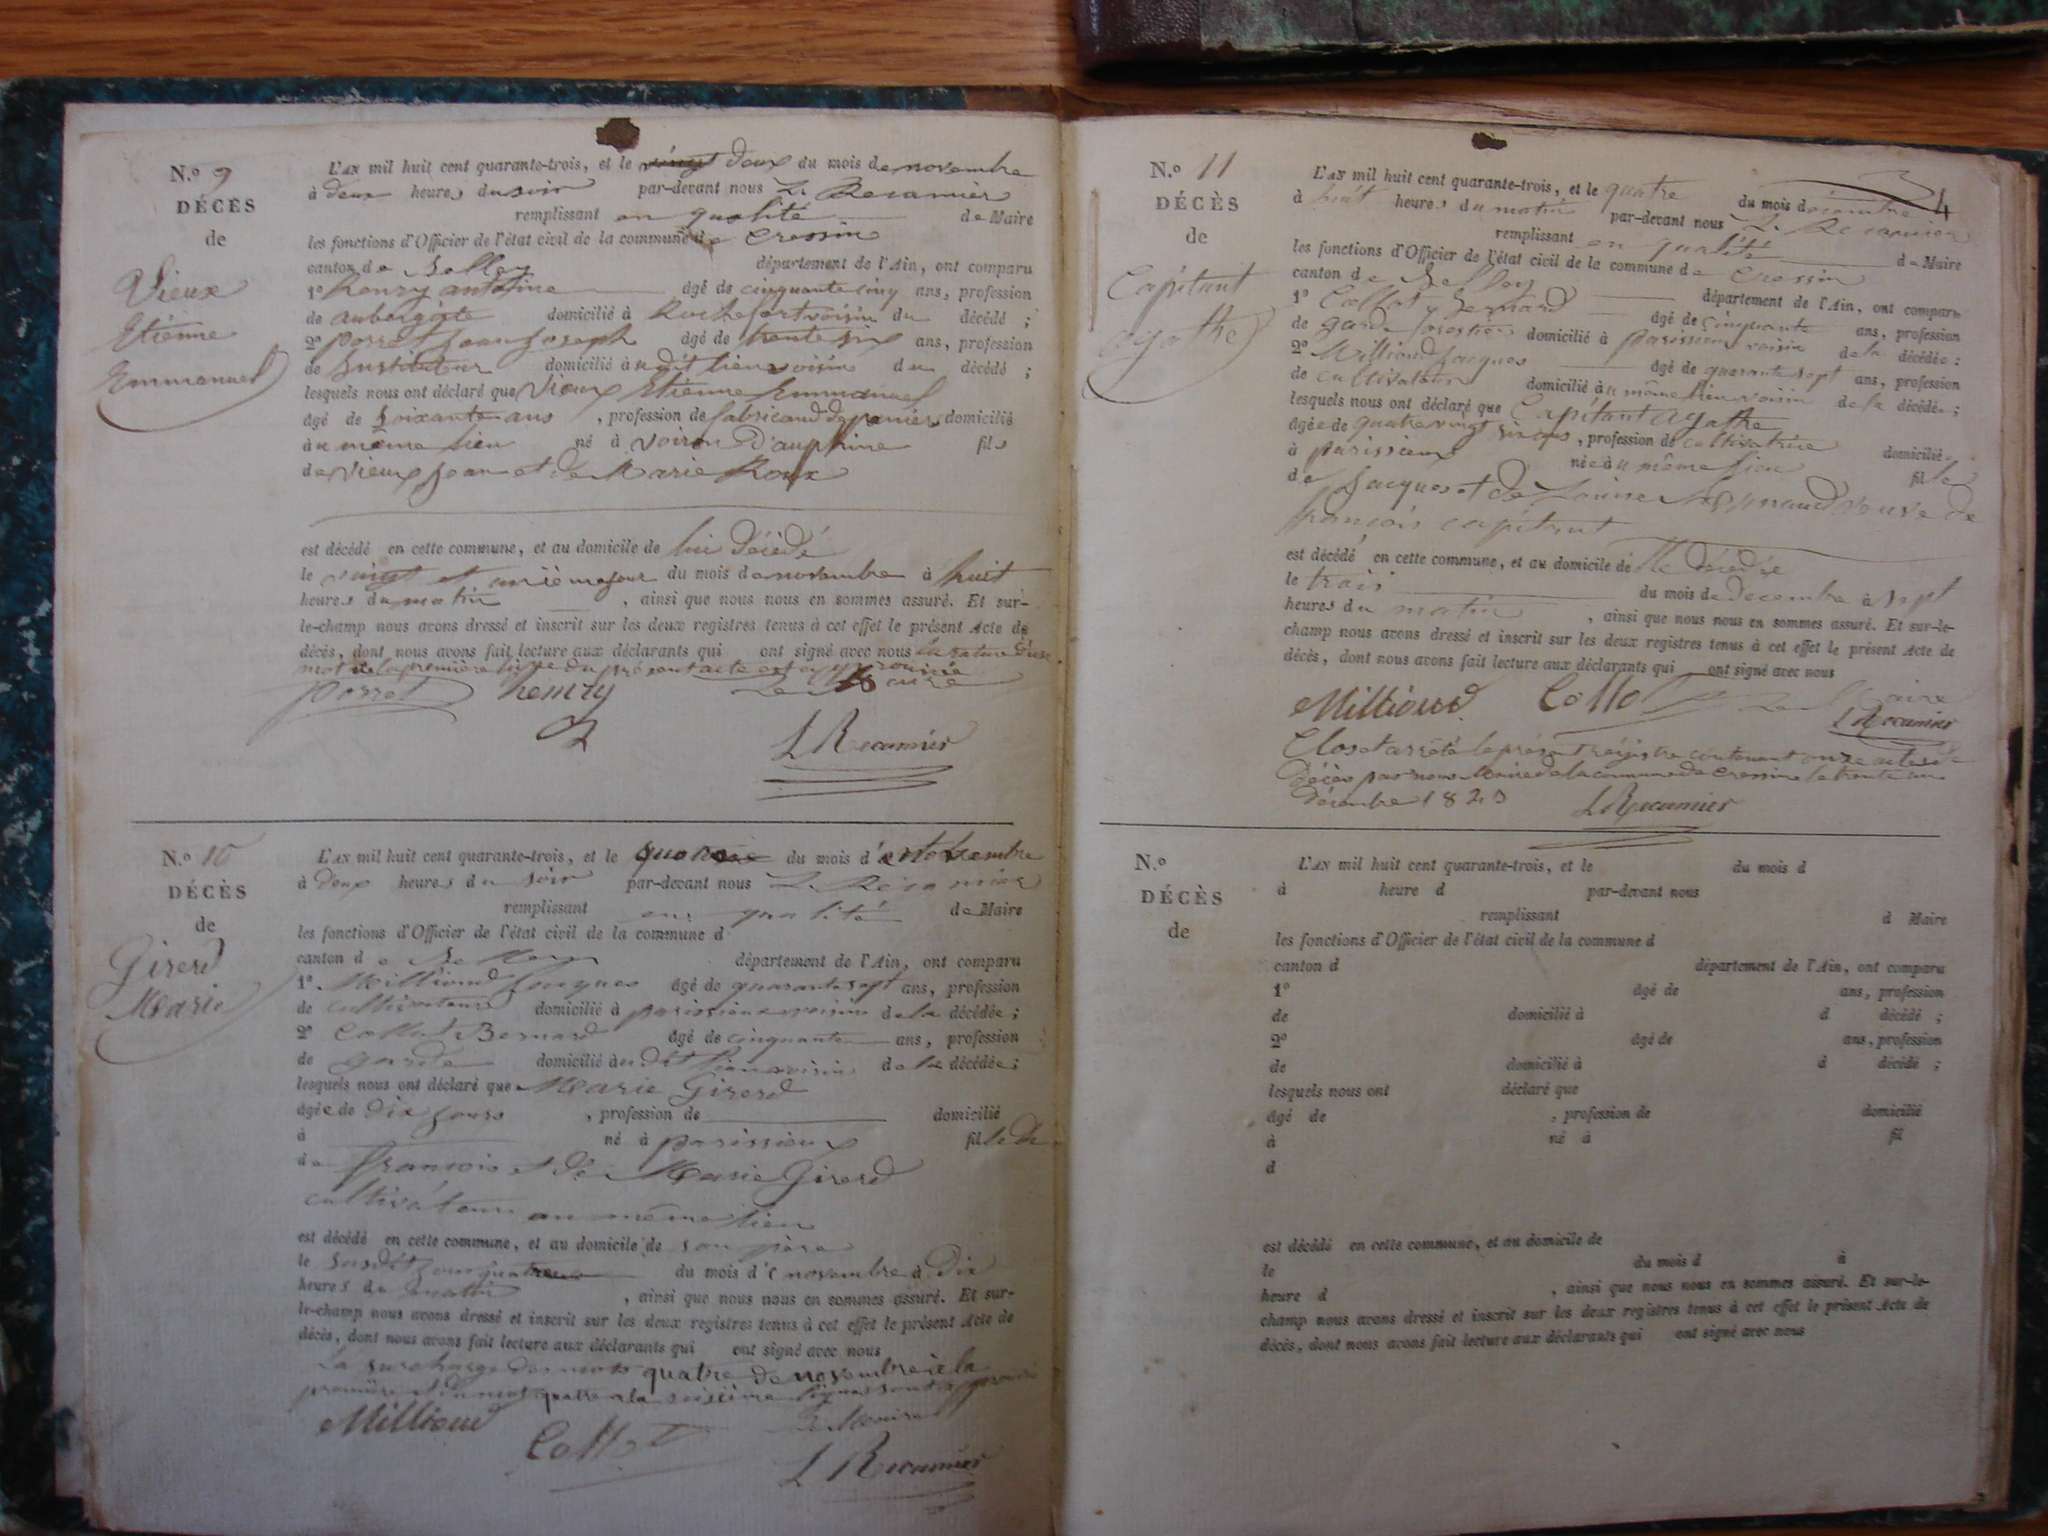 N.º 9
DÉCÈS
de
Vieux
Etienne
Emmanuel
L'AN mil huit cent quarante-trois, et le vingt deux du mois de novembre
à deux heures du soir par-devant nous L. Recamier
remplissant en qualité de Maire
les fonctions d'Officier de l'état civil de la commune de Cressin
canton de Belley département de l'Ain, ont comparu
1º henry antoine âgé de cinquante cinq ans, profession
de aubergiste domicilié à Rochefort voisin du décédé ;
2º porret jean joseph âgé de trente six ans, profession
de Instituteur domicilié à udit lieu voisin du décédé ;
lesquels nous ont déclaré que Vieux Etienne Emmanuel
âgé de Soixante ans , profession de fabricand de panier domicilié
à u même lieu né à voiron Dauphine fils
de vieux jean et de Marie Roux
est décédé en cette commune, et au domicile de lui décédé
le vingt et unième jour du mois de novembre à huit
heures du matin , ainsi que nous nous en sommes assuré. Et sur-
le-champ nous avons dressé et inscrit sur les deux registres tenus à cet effet le présent Acte de
décès, dont nous avons fait lecture aux déclarants qui ont signé avec nous la rature d'un
mot de la première ligne du présent acte est approuvée
porret henry Le Maire
L Recamier
N.º 10
DÉCÈS
de
Girerd
Marie
L'AN mil huit cent quarante-trois, et le quatre du mois d novembre
à deux heures du soir par-devant nous L. Récamier
remplissant en qualité de Maire
les fonctions d'Officier de l'état civil de la commune d
canton de Belley département de l'Ain, ont comparu
1º. Milliand Jacques âgé de quarante sept ans, profession
de cultivateur domicilié à parissieux voisin de la décédée ;
2º Collot Bernard âgé de cinquante ans, profession
de garde domicilié à u dit lieu voisin de la décédée ;
lesquels nous ont déclaré que Marie Girerd
âgée de dix jours , profession de domicilié
à né à parissieux fille de
de françois et de Marie Girerd
cultivateur au même lieu
est décédé en cette commune, et au domicile de son père
le susdit jour quatre du mois de novembre à Dix
heures du matin , ainsi que nous nous en sommes assuré. Et sur-
le-champ nous avons dressé et inscrit sur les deux registres tenus à cet effet le présent Acte de
décès, dont nous avons fait lecture aux déclarants qui ont signé avec nous
La surcharge des mots quatre de novembre à la
première et du mot quatre a la seisième lignes sont approuvé
Milliand Collot Le Maire
L Recamier
4
N.º 11
DÉCÈS
de
Capitant
agathe
L'AN mil huit cent quarante-trois, et le quatre du mois décembre
à huit heures du matin par-devant nous L. Recamier
remplissant en qualité de Maire
les fonctions d'Officier de l'état civil de la commune de Cressin
canton de Belley département de l'Ain, ont comparu
1º Collot Bernard âgé de cinquante ans, profession
de garde forestier domicilié à parissieux voisin de la décédée :
2º Milliand Jacques âgé de quarante sept ans, profession
de cultivateur domicilié à u même lieu voisin de la décédée ;
lesquels nous ont déclaré que Capitant agathe
âgée de quatre vingt six ans , profession de cultivatrice domicilié
à parissieux née à u même lieu fille
de Jacques et de Louise veuve de
françois capitant
est décédé en cette commune, et au domicile de elle décédée
le trois du mois de décembre à sept
heures du matin , ainsi que nous nous en sommes assuré. Et sur-le-
champ nous avons dressé et inscrit sur les deux registres tenus à cet effet le présent Acte de
décès, dont nous avons fait lecture aux déclarants qui ont signé avec nous
Milliand Collot Le Maire
L Recamier
Clos et arrêté le présent régistre contenant onze actes de
décès par nous Maire de la commune de Cressin le trente un
décembre 1843 L Recamier
N.º
DÉCÈS
de
L'AN mil huit cent quarante-trois, et le du mois d
à heure d par-devant nous
remplissant d Maire
les fonctions d'Officier de l'état civil de la commune d
canton d département de l'Ain, ont comparu
1º âgé de ans, profession
de domicilié à d décédé ;
2º âgé de ans, profession
de domicilié à d décédé ;
lesquels nous ont déclaré que
âgé de , profession de domicilié
à né à fil
d
est décédé en cette commune, et au domicile de
le du mois d à
heure d , ainsi que nous nous en sommes assuré. Et sur-le-
champ nous avons dressé et inscrit sur les deux registres tenus à cet effet le présent Acte de
décès, dont nous avons fait lecture aux déclarants qui ont signé avec nous